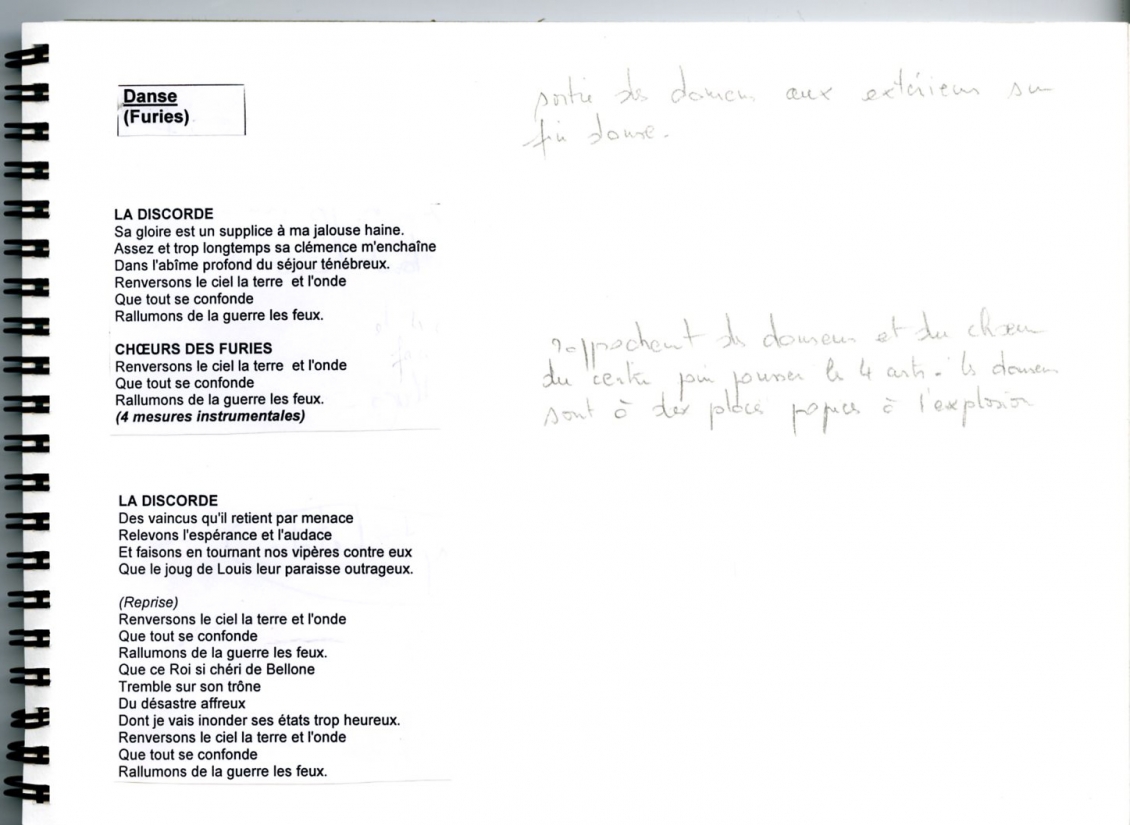 Danse
(Furies)
sortie des danseurs aux extérieurs sur
fin danse.
LA DISCORDE
Sa gloire est un supplice à ma jalouse haine.
Assez et trop longtemps sa clémence m'enchaîne
Dans l'abîme profond du séjour ténébreux.
Renversons le ciel la terre et l'onde
Que tout se confonde
Rallumons de la guerre les feux.
CHŒURS DES FURIES
Renversons le ciel la terre et l'onde
Que tout se confonde
Rallumons de la guerre les feux.
(4 mesures instrumentales)
rapprochent des danseurs et du chœur
du centre pour pousser les 4 arts. les danseurs
sont à des places à l'explosion
LA DISCORDE
Des vaincus qu'il retient par menace
Relevons l'espérance et l'audace
Et faisons en tournant nos vipères contre eux
Que le joug de Louis leur paraisse outrageux.
(Reprise)
Renversons le ciel la terre et l'onde
Que tout se confonde
Rallumons de la guerre les feux.
Que ce Roi si chéri de Bellone
Tremble sur son trône
Du désastre affreux
Dont je vais inonder ses états trop heureux.
Renversons le ciel la terre et l'onde
Que tout se confonde
Rallumons de la guerre les feux.